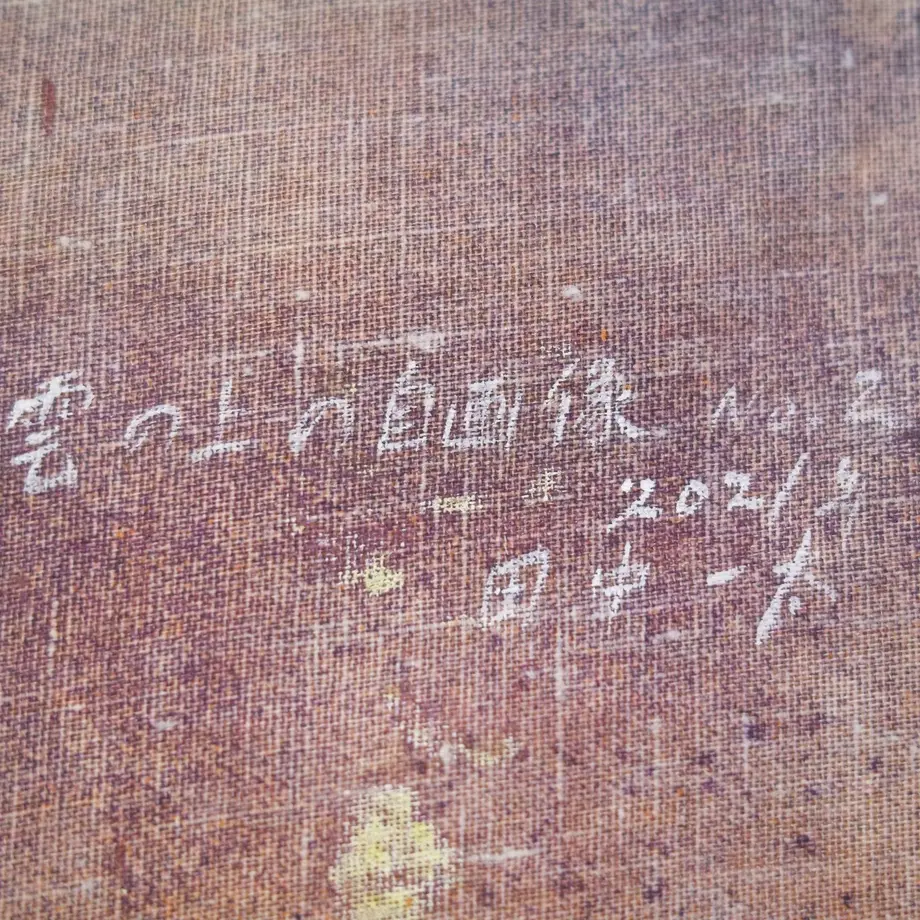 雲の上の自画像 No.2
2021/2
田中一太